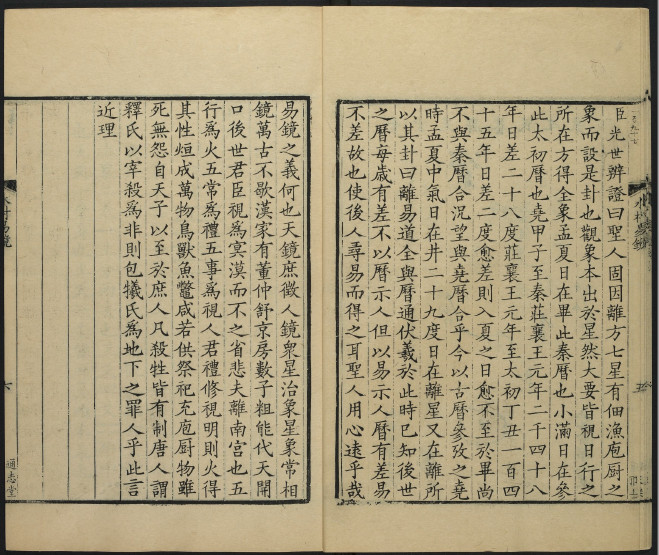 臣光世辨證曰聖人固因離方七星有佃漁庖厨之
象而設是卦也觀象本出於星然大要皆視日行之
所在方得全象孟夏日在畢此秦曆也小滿日在參
此太初曆也堯甲子至秦莊襄王元年二千四十八
年日差二十八度莊襄王元年至太初丁丑一百四
十五年日差二度愈差則入夏之日愈不至於畢尚
不與秦曆合況望與堯曆合乎今以古曆參攷之堯
時孟夏中氣日在井二十九度日在離星又在離所
以其卦曰離易道全與曆通伏羲於此時已知後世
之曆每歲有差不以曆示人但以易示人曆有差易
不差故也使後人尋易而得之耳聖人用心遠乎哉
易鏡之義何也天鏡庶徵人鏡衆星治象星象常相
鏡萬古不歇漢家有董仲舒京房數子粗能代天開
口後世君臣視爲冥漠而不之省悲夫離南宫也五
行爲火五常爲禮五事爲視人君禮修視明則火得
其性烜成萬物鳥獸魚鼈咸若供祭祀充庖厨物雖
死無怨自天子以至於庶人凡殺牲皆有制唐人謂
釋氏以宰殺爲非則包犧氏爲地下之罪人乎此言
近理
六
通志堂